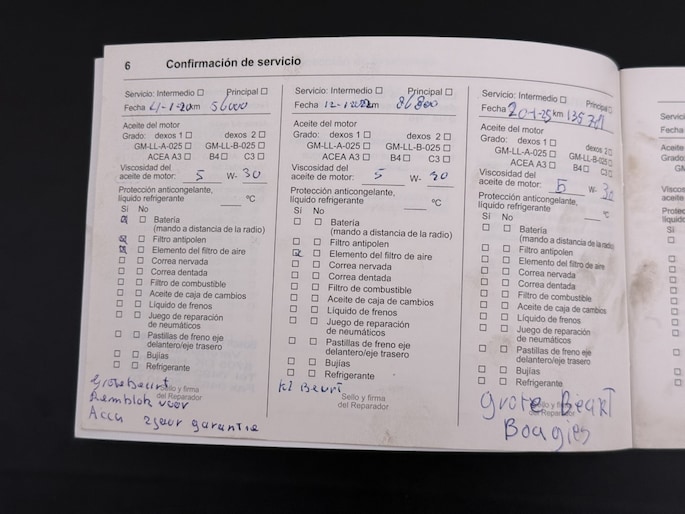 6 Confirmación de servicio
Servicio: Intermedio Principal
Fecha 4-1-20 km 56000
Aceite del motor
Grado: dexos 1 dexos 2
GM-LL-A-025 GM-LL-B-025
ACEA A3 B4 C3
Viscosidad del
aceite de motor: 5 W- 30
Protección anticongelante,
líquido refrigerante ºC
Sí No
Batería
(mando a distancia de la radio)
Filtro antipolen
Elemento del filtro de aire
Correa nervada
Correa dentada
Filtro de combustible
Aceite de caja de cambios
Líquido de frenos
Juego de reparación
de neumáticos
Pastillas de freno eje
delantero/eje trasero
Bujías
Refrigerante
Sello y firma
del Reparador
Grote Beurt
Remblok voor
Accu 2jaar garantie
Servicio: Intermedio Principal
Fecha 12-1-2022 km 86800
Aceite del motor
Grado: dexos 1 dexos 2
GM-LL-A-025 GM-LL-B-025
ACEA A3 B4 C3
Viscosidad del
aceite de motor: 5 W- 30
Protección anticongelante,
líquido refrigerante ºC
Sí No
Batería
(mando a distancia de la radio)
Filtro antipolen
Elemento del filtro de aire
Correa nervada
Correa dentada
Filtro de combustible
Aceite de caja de cambios
Líquido de frenos
Juego de reparación
de neumáticos
Pastillas de freno eje
delantero/eje trasero
Bujías
Refrigerante
Sello y firma
del Reparador
kl Beurt
Servicio: Intermedio Principal
Fecha 20-1-25 km
Aceite del motor
Grado: dexos 1 dexos 2
GM-LL-A-025 GM-LL-B-025
ACEA A3 B4 C3
Viscosidad del
aceite de motor: 5 W- 30
Protección anticongelante,
líquido refrigerante ºC
Sí No
Batería
(mando a distancia de la radio)
Filtro antipolen
Elemento del filtro de aire
Correa nervada
Correa dentada
Filtro de combustible
Aceite de caja de cambios
Líquido de frenos
Juego de reparación
de neumáticos
Pastillas de freno eje
delantero/eje trasero
Bujías
Refrigerante
Sello y firma
del Reparador
Grote Beurt
Bougies